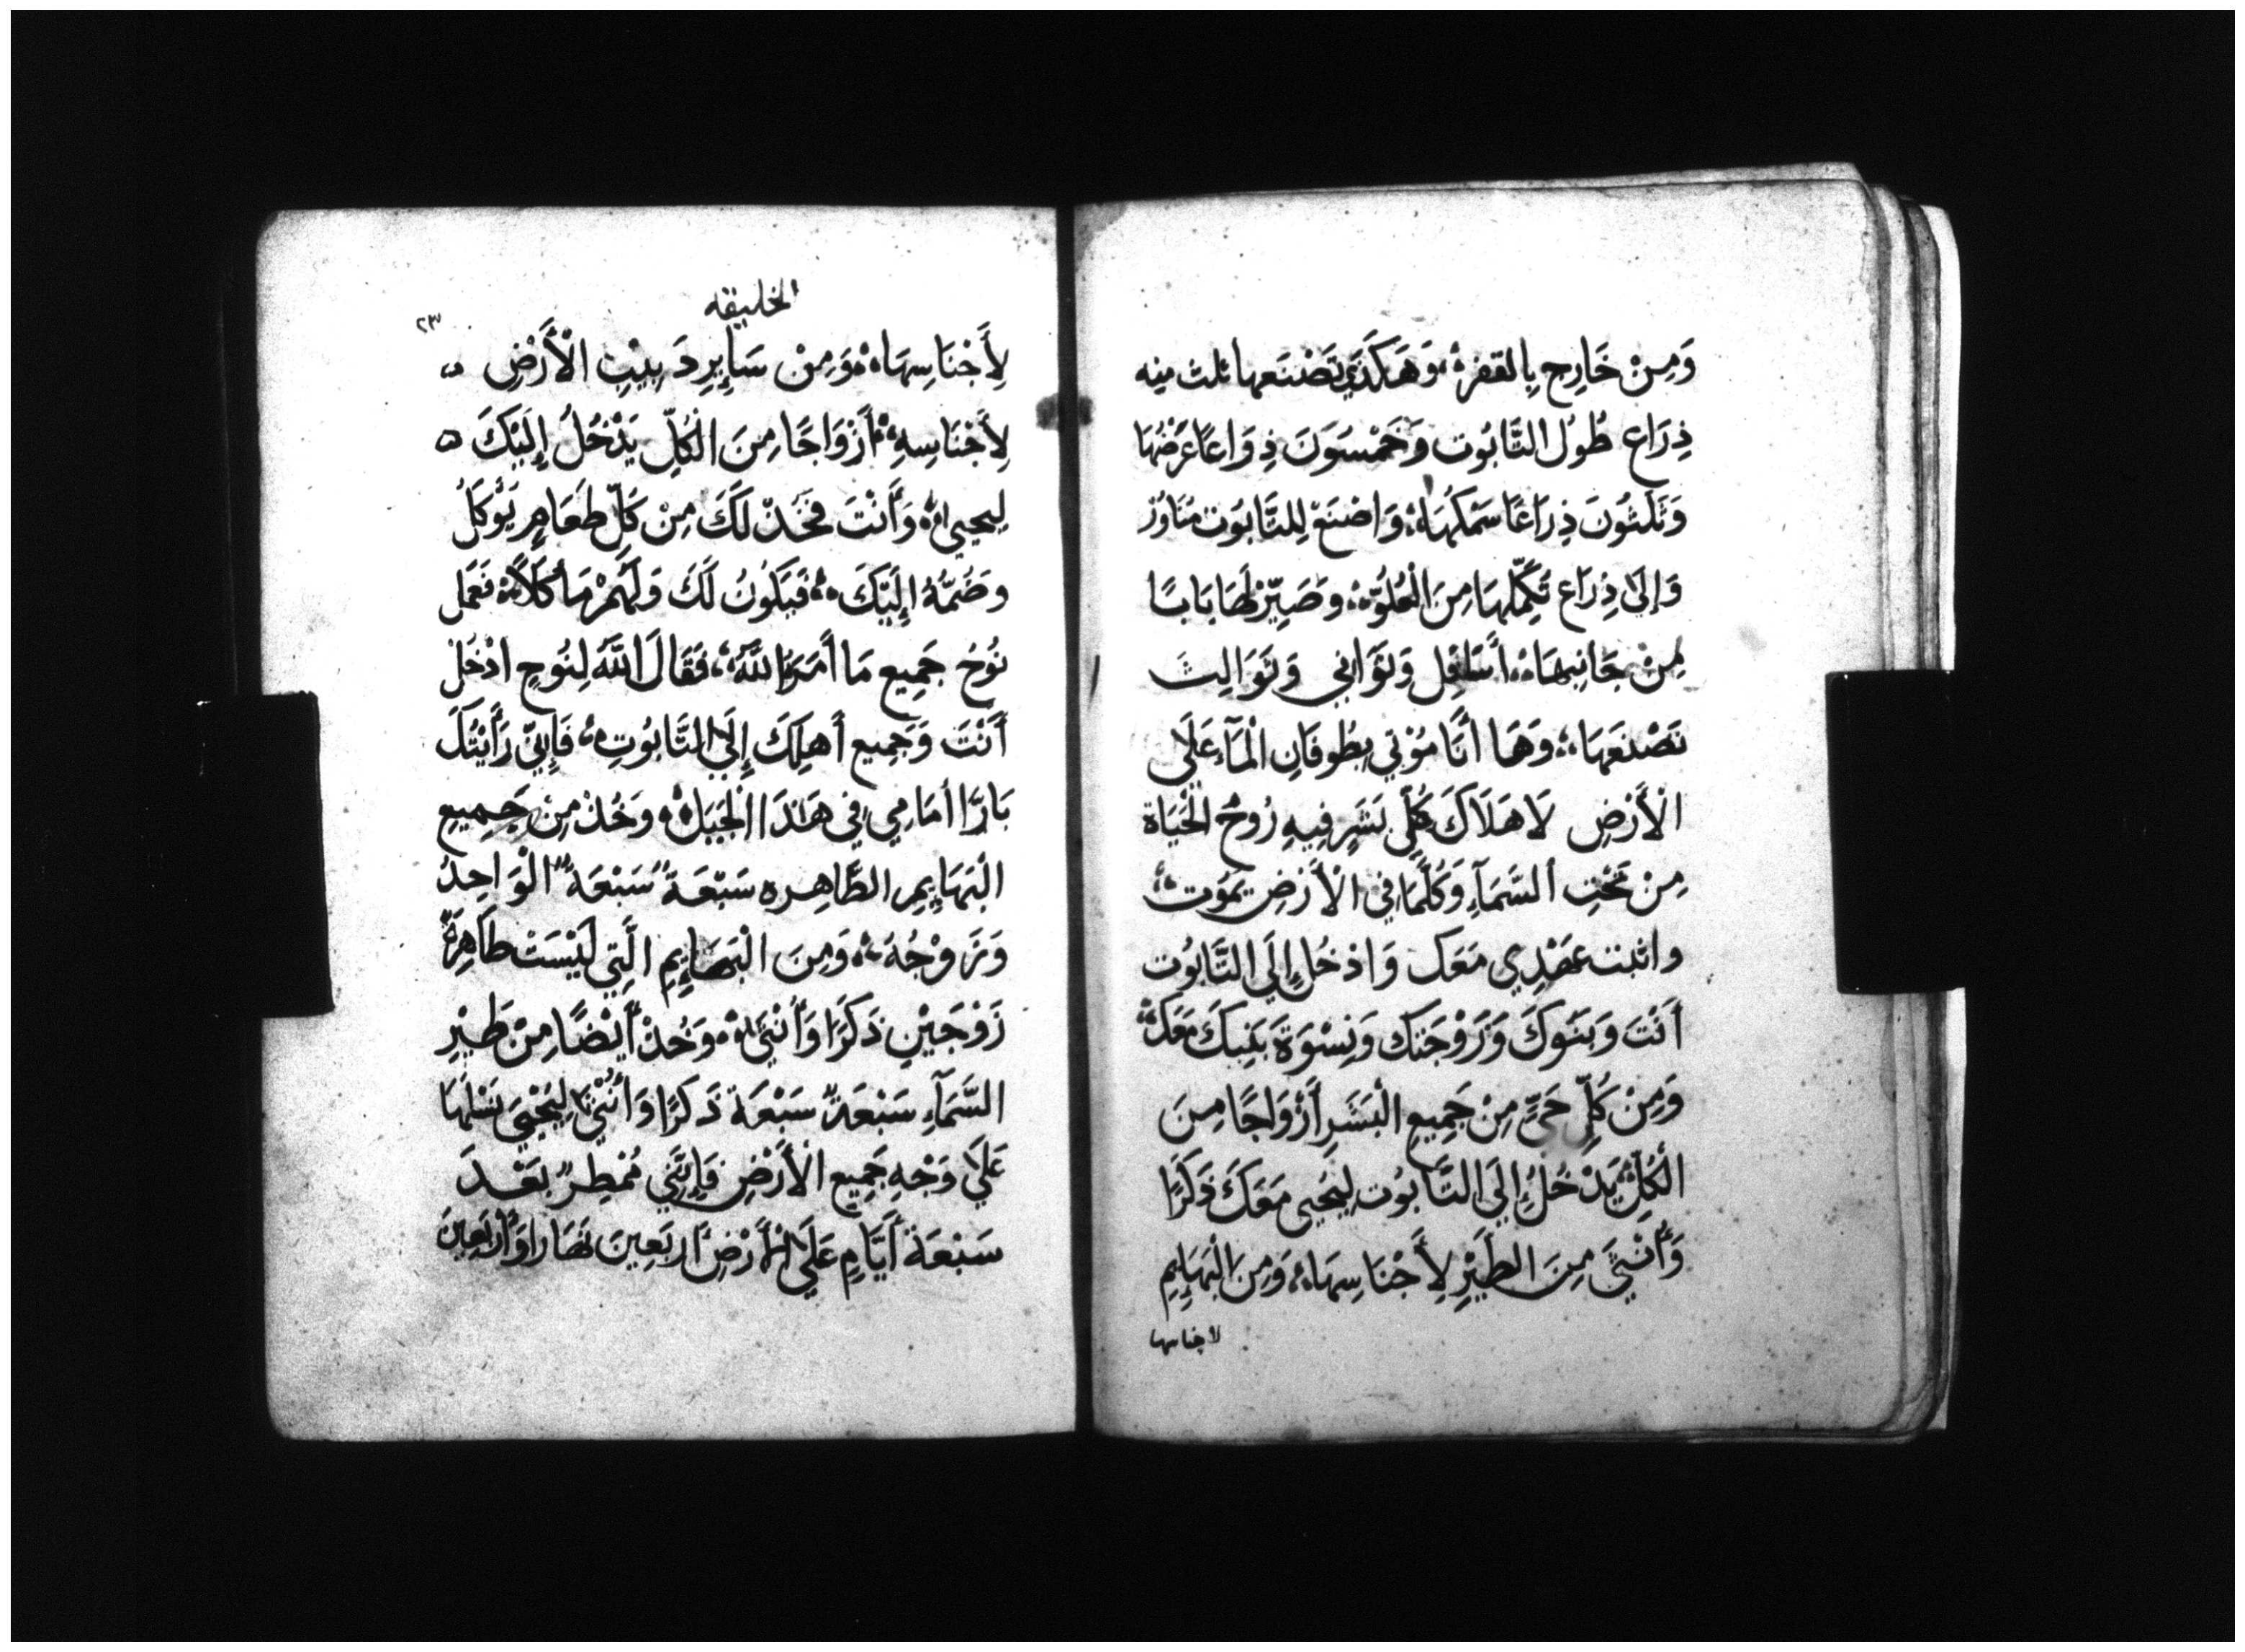 وَمِنْ خَارِج بِالقفره وَهَكَذَي تَصْنَعها ثلث ميه
ذِرَاع طُولُ التَّابُوت وَخَمْسُونَ ذِرَاعًا عَرْضُهَا
وَثَلَثُونَ ذِرَاعًا سَمْكُهَا وَاصْنَعْ لِلتَّابُوت مَنَاوُر
وَإِلَى ذِرَاع تُكَمِّلهَا مِنَ الْعُلُوّ وَصَيِّرْ لَهَا بَابًا
مِنْ جَانِبهَا أَسَافِل وَثَوَانِي وَثَوَالِثَ
تَصْنعَهَا وَهَا أَنَا مُؤتي بِطُوفَانِ الْمَآءِ عَلَي
الْأَرْضِ لَاهَلَاكَ كُلِّ بَشَرٍ فِيهِ رُوحُ الْحَيَاة
مِنْ تَحْتِ السَّمَآءِ وَكُلَّمَا فِي الْأَرْضِ يَمُوت
واثبت عَهْدِي مَعَك وَادْخُل إِلَي التَّابُوت
أَنْتَ وَبَنُوكَ وَزَوْجَتك وَنِسْوَة بَنِيكَ مَعَكَ
وَمِنْ كُلِّ حَيٍّ مِنْ جَمِيعِ الْبَشَرِ أَزْوَاجًا مِنَ
الْكُلِّ يَدْخُلُ إِلَي التَّابُوت لِيَحْيى مَعَكَ ذَكَرًا
وَأُنْثَي مِنَ الطَّيْرِ لِأَجْنَاسِهَا وَمِنَ الْبَهَايِمِ
لاجناسها
الخليقه
٢٣
لِأَجْنَاسِهَا وَمِنْ سَايِرِ دَبِيبِ الْأَرْضِ
لِأَجْنَاسِهِ أَزْوَاجًا مِنَ الْكُلِّ يَدْخُلُ إِلَيْكَ
لِيحيي وَأَنْتَ فَخُذْ لَكَ مِنْ كُلِّ طَعَامٍ يُوْكَلُ
وَضُمَّهُ إِلَيْكَ فَيَكُونُ لَكَ وَلَهُمْ مَأْكَلًا فَعَمَلَ
نُوحُ جَمِيع مَا أَمَرَهُ اللَّهُ فَقَالَ اللَّهُ لِنُوحِ ادْخُلْ
أَنْتَ وَجَمِيع أَهلِكَ إِلَي التَّابُوتِ فَإِنِّي رَأَيْتُكَ
بَارًّا أَمَامِي فِي هَذَا الْجَيَل وَخُذْ مِنْ جَمِيعِ
الْبَهَايِمِ الطَّاهِره سَبْعَةً سَبْعَةً الْوَاحِدُ
وَزَوْجُهُ وَمِنَ الْبَهَايِمِ الَّتِي لَيْسَتْ طَاهِرَةً
زَوْجَيْنِ ذَكَرًا وَأُنْثَي وَخُذْ أَيْضًا مِنْ طَيْرِ
السَّمَآءِ سَبْعَةً سَبْعَة ذَكَرًا وَأُنْثَي لِيُحْيِيَ نَسْلهَا
عَلَي وَجْهِ جَمِيع الْأَرْضِ فَإِنَّنِي مُمْطِرٌ بَعْدَ
سَبْعَة أَيَّامٍ عَلَي الْأَرْضِ أَرْبَعِينَ نَهَارًا وَأَرْبَعِينَ